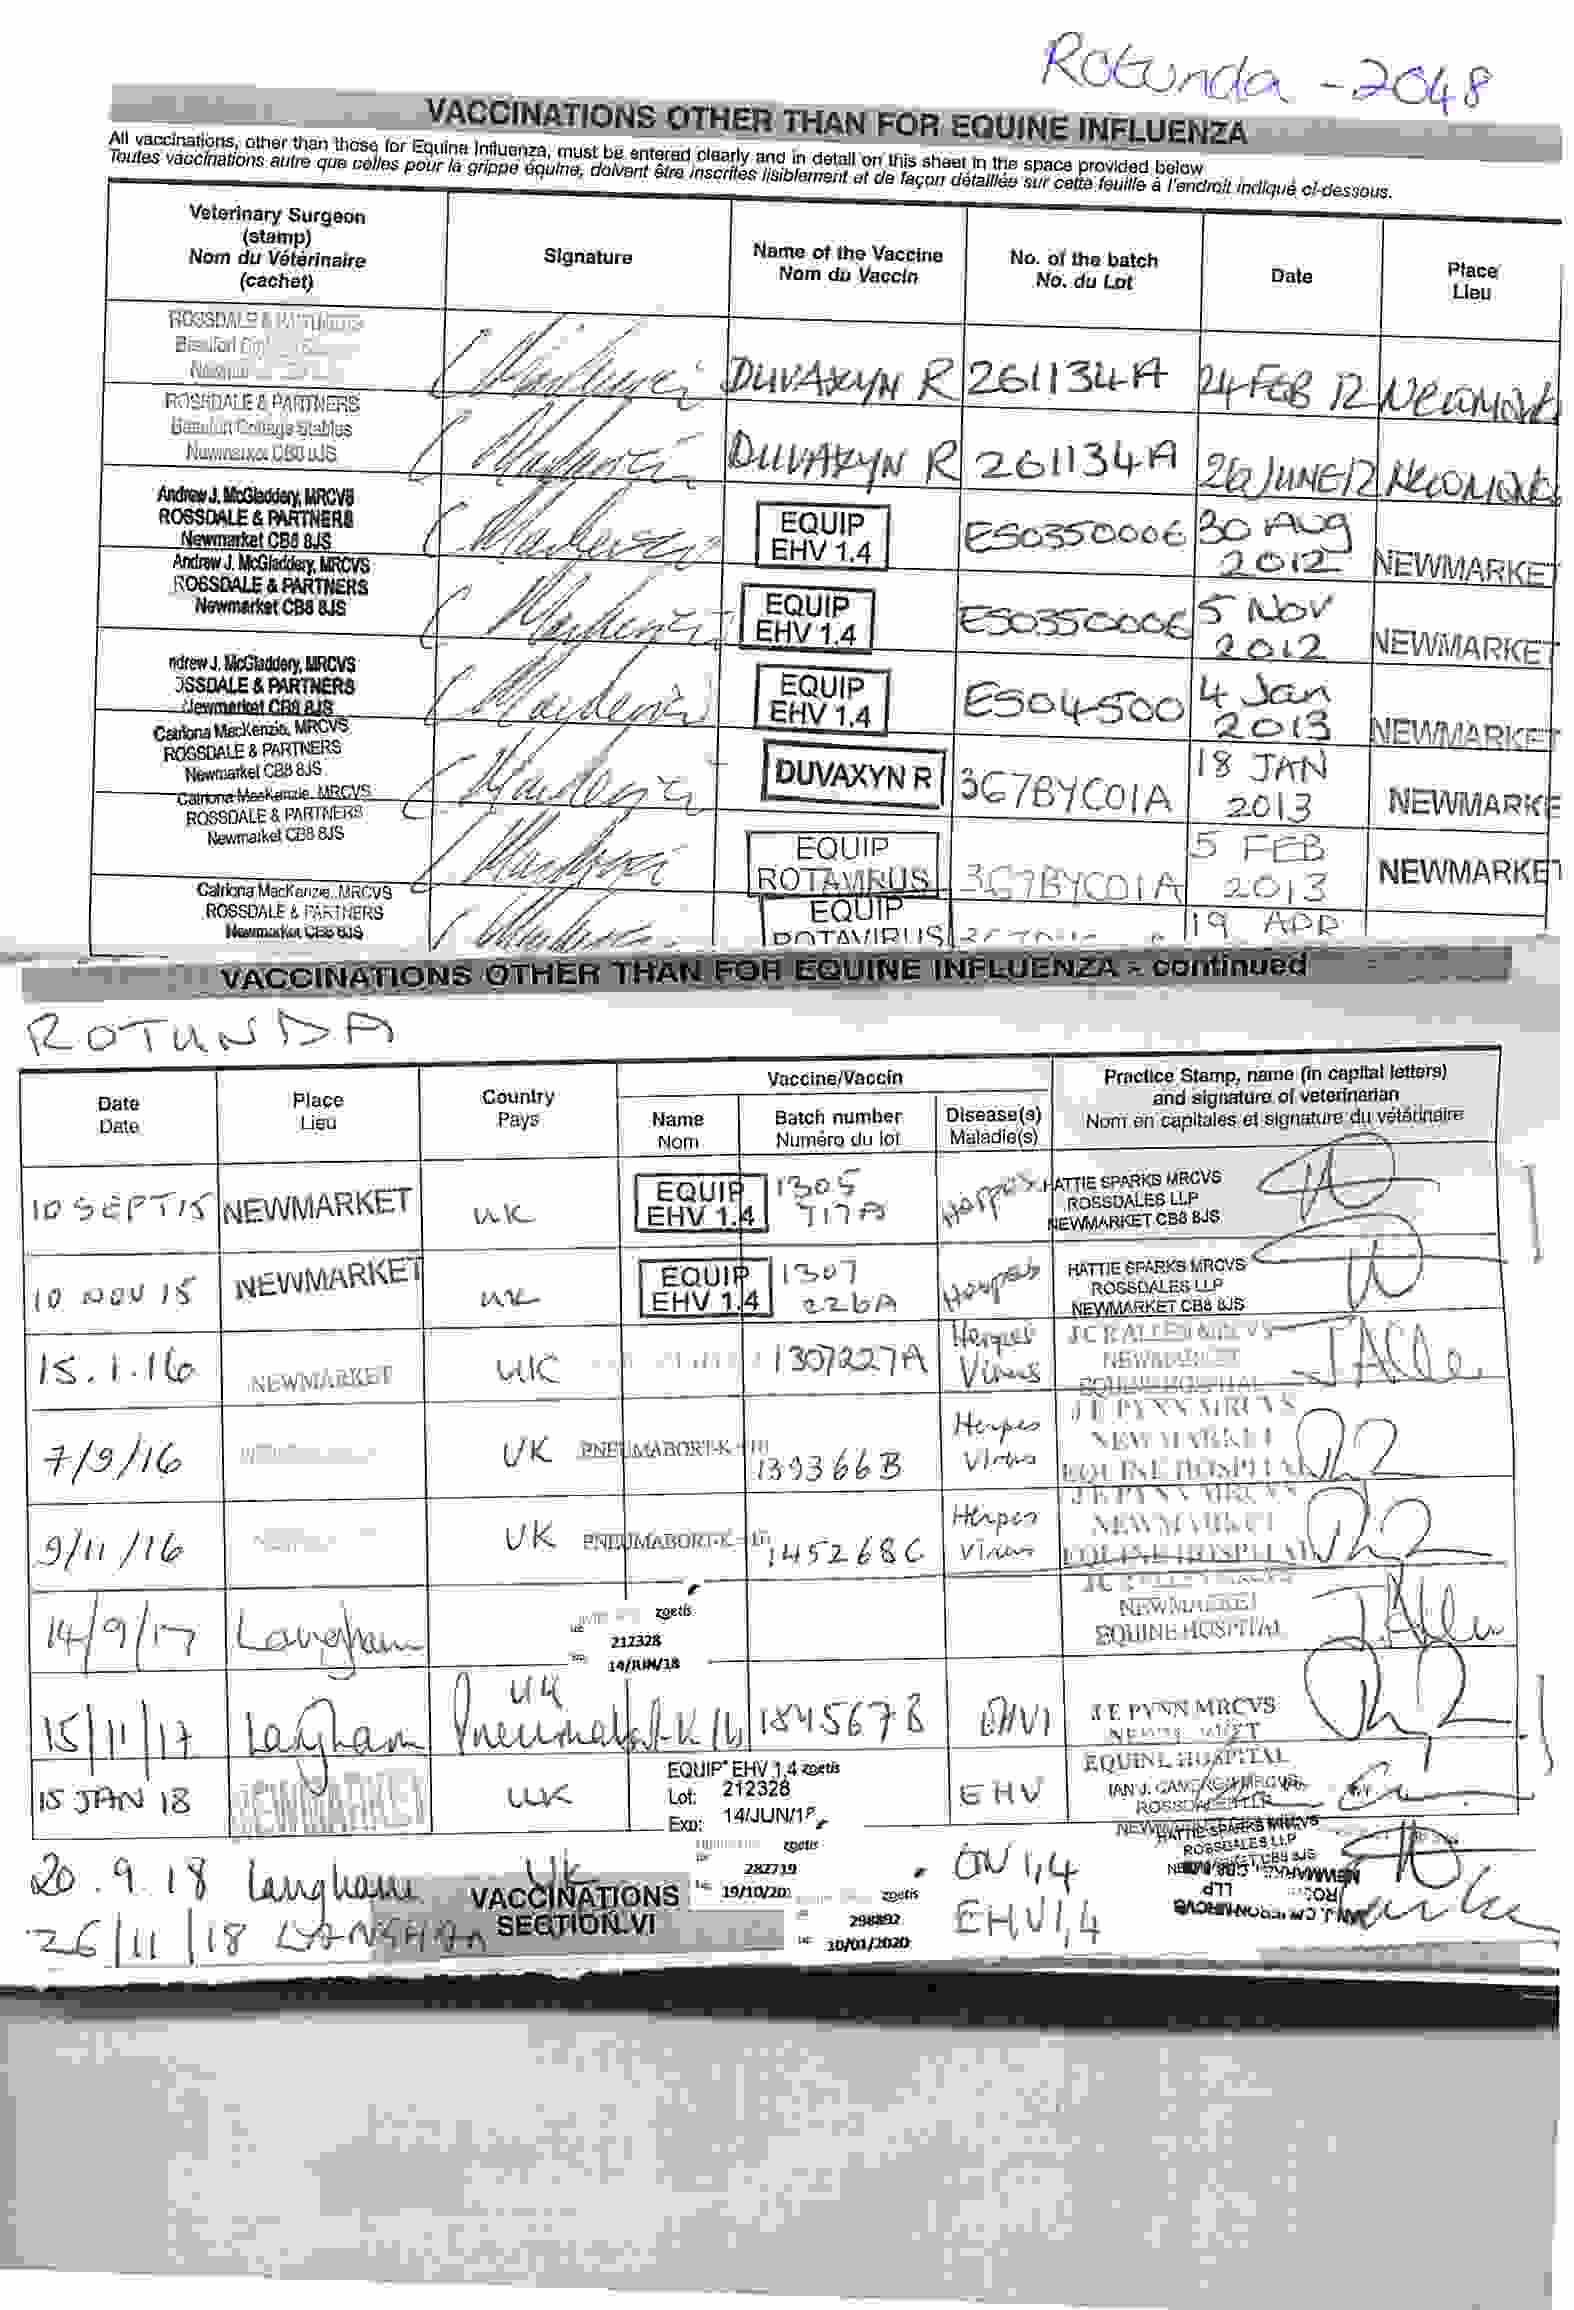 Rotunda - 2048
VACCINATIONS OTHER THAN FOR EQUINE INFLUENZA
All vaccinations, other than those for Equine Influenza, must be entered clearly and in detail on this sheet in the space provided below
Toutes vaccinations autre que celles pour la grippe équine, doivent être inscrites lisiblement et de façon détaillée sur cette feuille à l'endroit indiqué ci-dessous.
Veterinary Surgeon (stamp) Nom du Vétérinaire (cachet) Signature Name of the Vaccine Nom du Vaccin No. of the batch No. du Lot Date Place Lieu
ROSSDALE & PARTNERS DUVAXYN R 261134A 24 FEB 12
ROSSDALE & PARTNERS
Beaufort Cottage Stables
Newmarket CB8 8JS DUVAXYN R 261134A 26 JUNE 12
Andrew J. McGladdery, MRCVS
ROSSDALE & PARTNERS
Newmarket CB8 8JS EQUIP EHV 1.4 ES0350006 30 AUG 2012 NEWMARKET
Andrew J. McGladdery, MRCVS
ROSSDALE & PARTNERS
Newmarket CB8 8JS EQUIP EHV 1.4 ES0350006 5 NOV 2012 NEWMARKET
ndrew J. McGladdery, MRCVS
OSSDALE & PARTNERS
Newmarket CB8 8JS EQUIP EHV 1.4 ES04500 4 Jan 2013 NEWMARKET
Catriona MacKenzie, MRCVS
ROSSDALE & PARTNERS
Newmarket CB8 8JS DUVAXYN R 3G7BYC01A 18 JAN 2013 NEWMARKE
Catriona MacKenzie, MRCVS
ROSSDALE & PARTNERS
Newmarket CB8 8JS EQUIP ROTAVIRUS 3G7BYC01A 5 FEB 2013 NEWMARKET
Catriona MacKenzie, MRCVS
ROSSDALE & PARTNERS
Newmarket CB8 8JS EQUIP ROTAVIRUS 19 APR
VACCINATIONS OTHER THAN FOR EQUINE INFLUENZA - continued
ROTUNDA
Date Date Place Lieu Country Pays Vaccine/Vaccin Name Nom Batch number Numéro du lot Disease(s) Maladie(s) Practice Stamp, name (in capital letters) and signature of veterinarian Nom en capitales et signature du vétérinaire
10 SEPT 15 NEWMARKET UK EQUIP EHV 1.4 1305 717A Herpes HATTIE SPARKS MRCVS
ROSSDALES LLP
NEWMARKET CB8 8JS
10 NOV 15 NEWMARKET UK EQUIP EHV 1.4 1307 226A Herpes HATTIE SPARKS MRCVS
ROSSDALES LLP
NEWMARKET CB8 8JS
15.1.16 NEWMARKET UK 1307227A Herpes Virus J C R ALLEN MRCVS
NEWMARKET
EQUINE HOSPITAL J Alle
7/9/16 UK PNEUMABORT-K 139366B Herpes Virus J E PYNN MRCVS
NEWMARKET
EQUINE HOSPITAL
9/11/16 UK PNEUMABORT-K 145268C Herpes Virus J E PYNN MRCVS
NEWMARKET
EQUINE HOSPITAL
14/9/17 Langham zoetis 212328 14/JUN/18 NEWMARKET
EQUINE HOSPITAL
15/11/17 Langham UK Pneumabort-K 184567B EHV1 J E PYNN MRCVS
EQUINE HOSPITAL
15 JAN 18 NEWMARKET UK EQUIP EHV 1,4 zoetis
Lot: 212328
Exp: 14/JUN/18 EHV IAN J. CAMERON MRCVS
ROSSDALES LLP
20.9.18 Langham UK zoetis 282719 19/10/20 EHV 1,4 HATTIE SPARKS MRCVS
ROSSDALES LLP
NEWMARKET CB8 8JS
26/11/18 LANGHAM zoetis 298892 10/01/2020 EHV 1,4 IAN J. CAMERON MRCVS
VACCINATIONS
SECTION VI